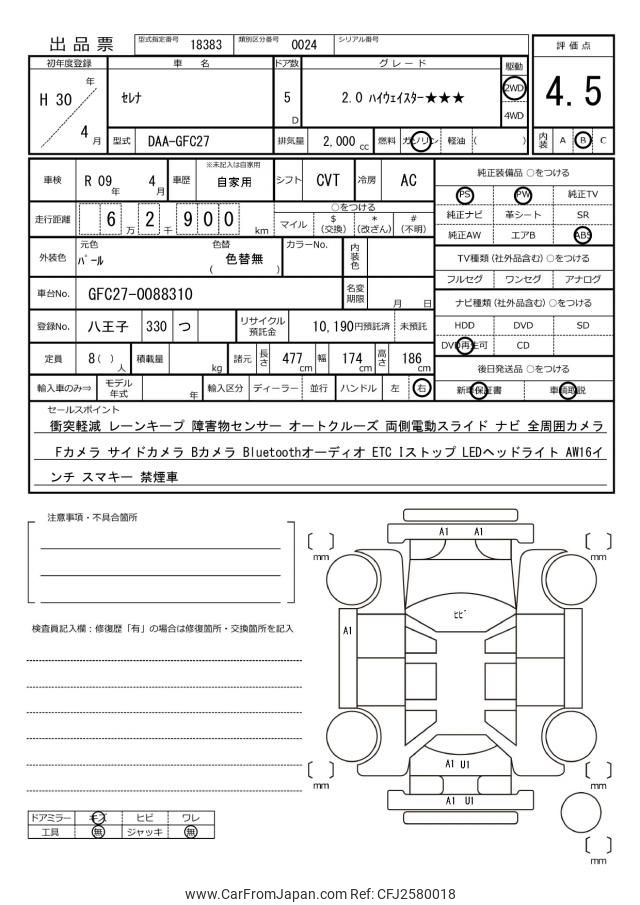 出品票 型式指定番号 18383 類別区分番号 0024 シリアル番号
評価点
4.5
内装 A B C
初年度登録 車名 ドア数 グレード 駆動
H 30 年 4 月
セレナ 5 D 2.0 ハイウェイスター★★★ 2WD
4WD
型式 DAA-GFC27 排気量 2,000 cc 燃料 ガソリン 軽油 ( )
車検 R 09 年 4 月 車歴 ※未記入は自家用 自家用 シフト CVT 冷房 AC
走行距離 6 2 万 千 9 0 0 km
○をつける
マイル $(交換) *(改ざん) #(不明)
外装色 元色 パール 色替 ( 色替無 ) カラーNo. 内装色
車台No. GFC27-0088310 名変期限 月 日
登録No. 八王子 330 つ リサイクル預託金 10,190円預託済 未預託
定員 8( )人 積載量 kg 諸元 長さ 477cm 幅 174cm 高さ 186cm
輸入車のみ⇒ モデル年式 年 輸入区分 ディーラー 並行 ハンドル 左 右
純正装備品 ○をつける
PS PW 純正TV
純正ナビ 革シート SR
純正AW エアB ABS
TV種類(社外品含む) ○をつける
フルセグ ワンセグ アナログ
ナビ種類(社外品含む) ○をつける
HDD DVD SD
DVD再生可 CD
後日発送品 ○をつける
新車保証書 車輌取説
セールスポイント
衝突軽減 レーンキープ 障害物センサー オートクルーズ 両側電動スライド ナビ 全周囲カメラ
Fカメラ サイドカメラ Bカメラ Bluetoothオーディオ ETC Iストップ LEDヘッドライト AW16イ
ンチ スマキー 禁煙車
注意事項・不具合箇所
検査員記入欄:修復歴「有」の場合は修復箇所・交換箇所を記入
ドアミラー キズ ヒビ ワレ
工具 無 ジャッキ 無
A1 A1
mm mm
ヒビ
A1
A1 U1
mm mm
A1 U1
mm
www.CarFromJapan.com Ref: CFJ2580018